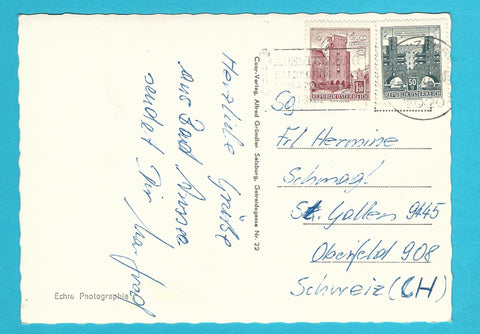 Herzliche Grüße
aus Bad Aussee
sendet Dir
Cosy-Verlag, Alfred Gründler, Salzburg, Getreidegasse Nr. 22
Echte Photographie
REPUBLIK ÖSTERREICH
50
REPUBLIK ÖSTERREICH
Sg
Frl Hermine
Schmagl
St. Gallen 9445
Oberfeld 908
Schweiz (CH)